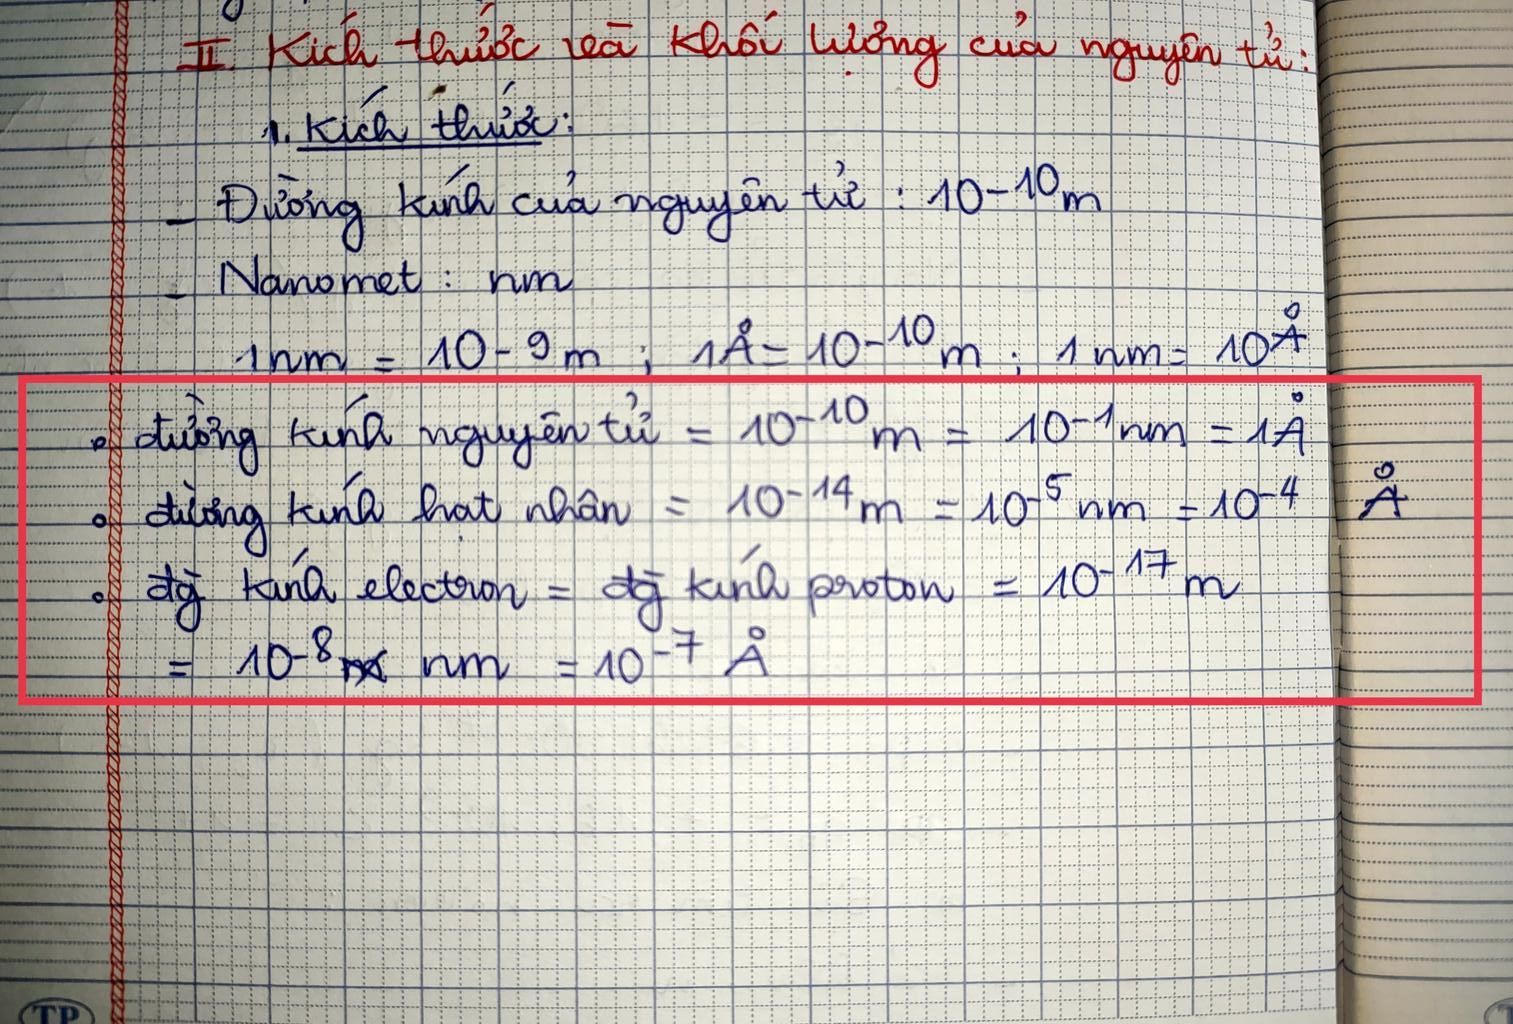 II. Kích thước và khối lượng của nguyên tử:
1. Kích thước:
- Đường kính của nguyên tử : 10-10m
- Nanomet : nm
1nm = 10-9m ; 1Å = 10-10m ; 1nm = 10Å
• đường kính nguyên tử = 10-10m = 10-1nm = 1Å
• đường kính hạt nhân = 10-14m = 10-5nm = 10-4 Å
• đg kính electron = đg kính proton = 10-17m
= 10-8 nm = 10-7 Å
TP